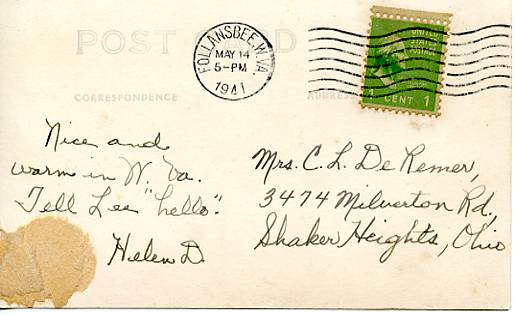 POST CARD
FOLLANSBEE, W.VA.
MAY 14
5-PM
1941
UNITED
STATES
POSTAGE
1 CENT 1
CORRESPONDENCE
ADDRESS
Nice and
warm in W. Va.
Tell Lee "hello".
Helen D.
Mrs. C. L. De Remer,
3474 Milverton Rd,
Shaker Heights, Ohio